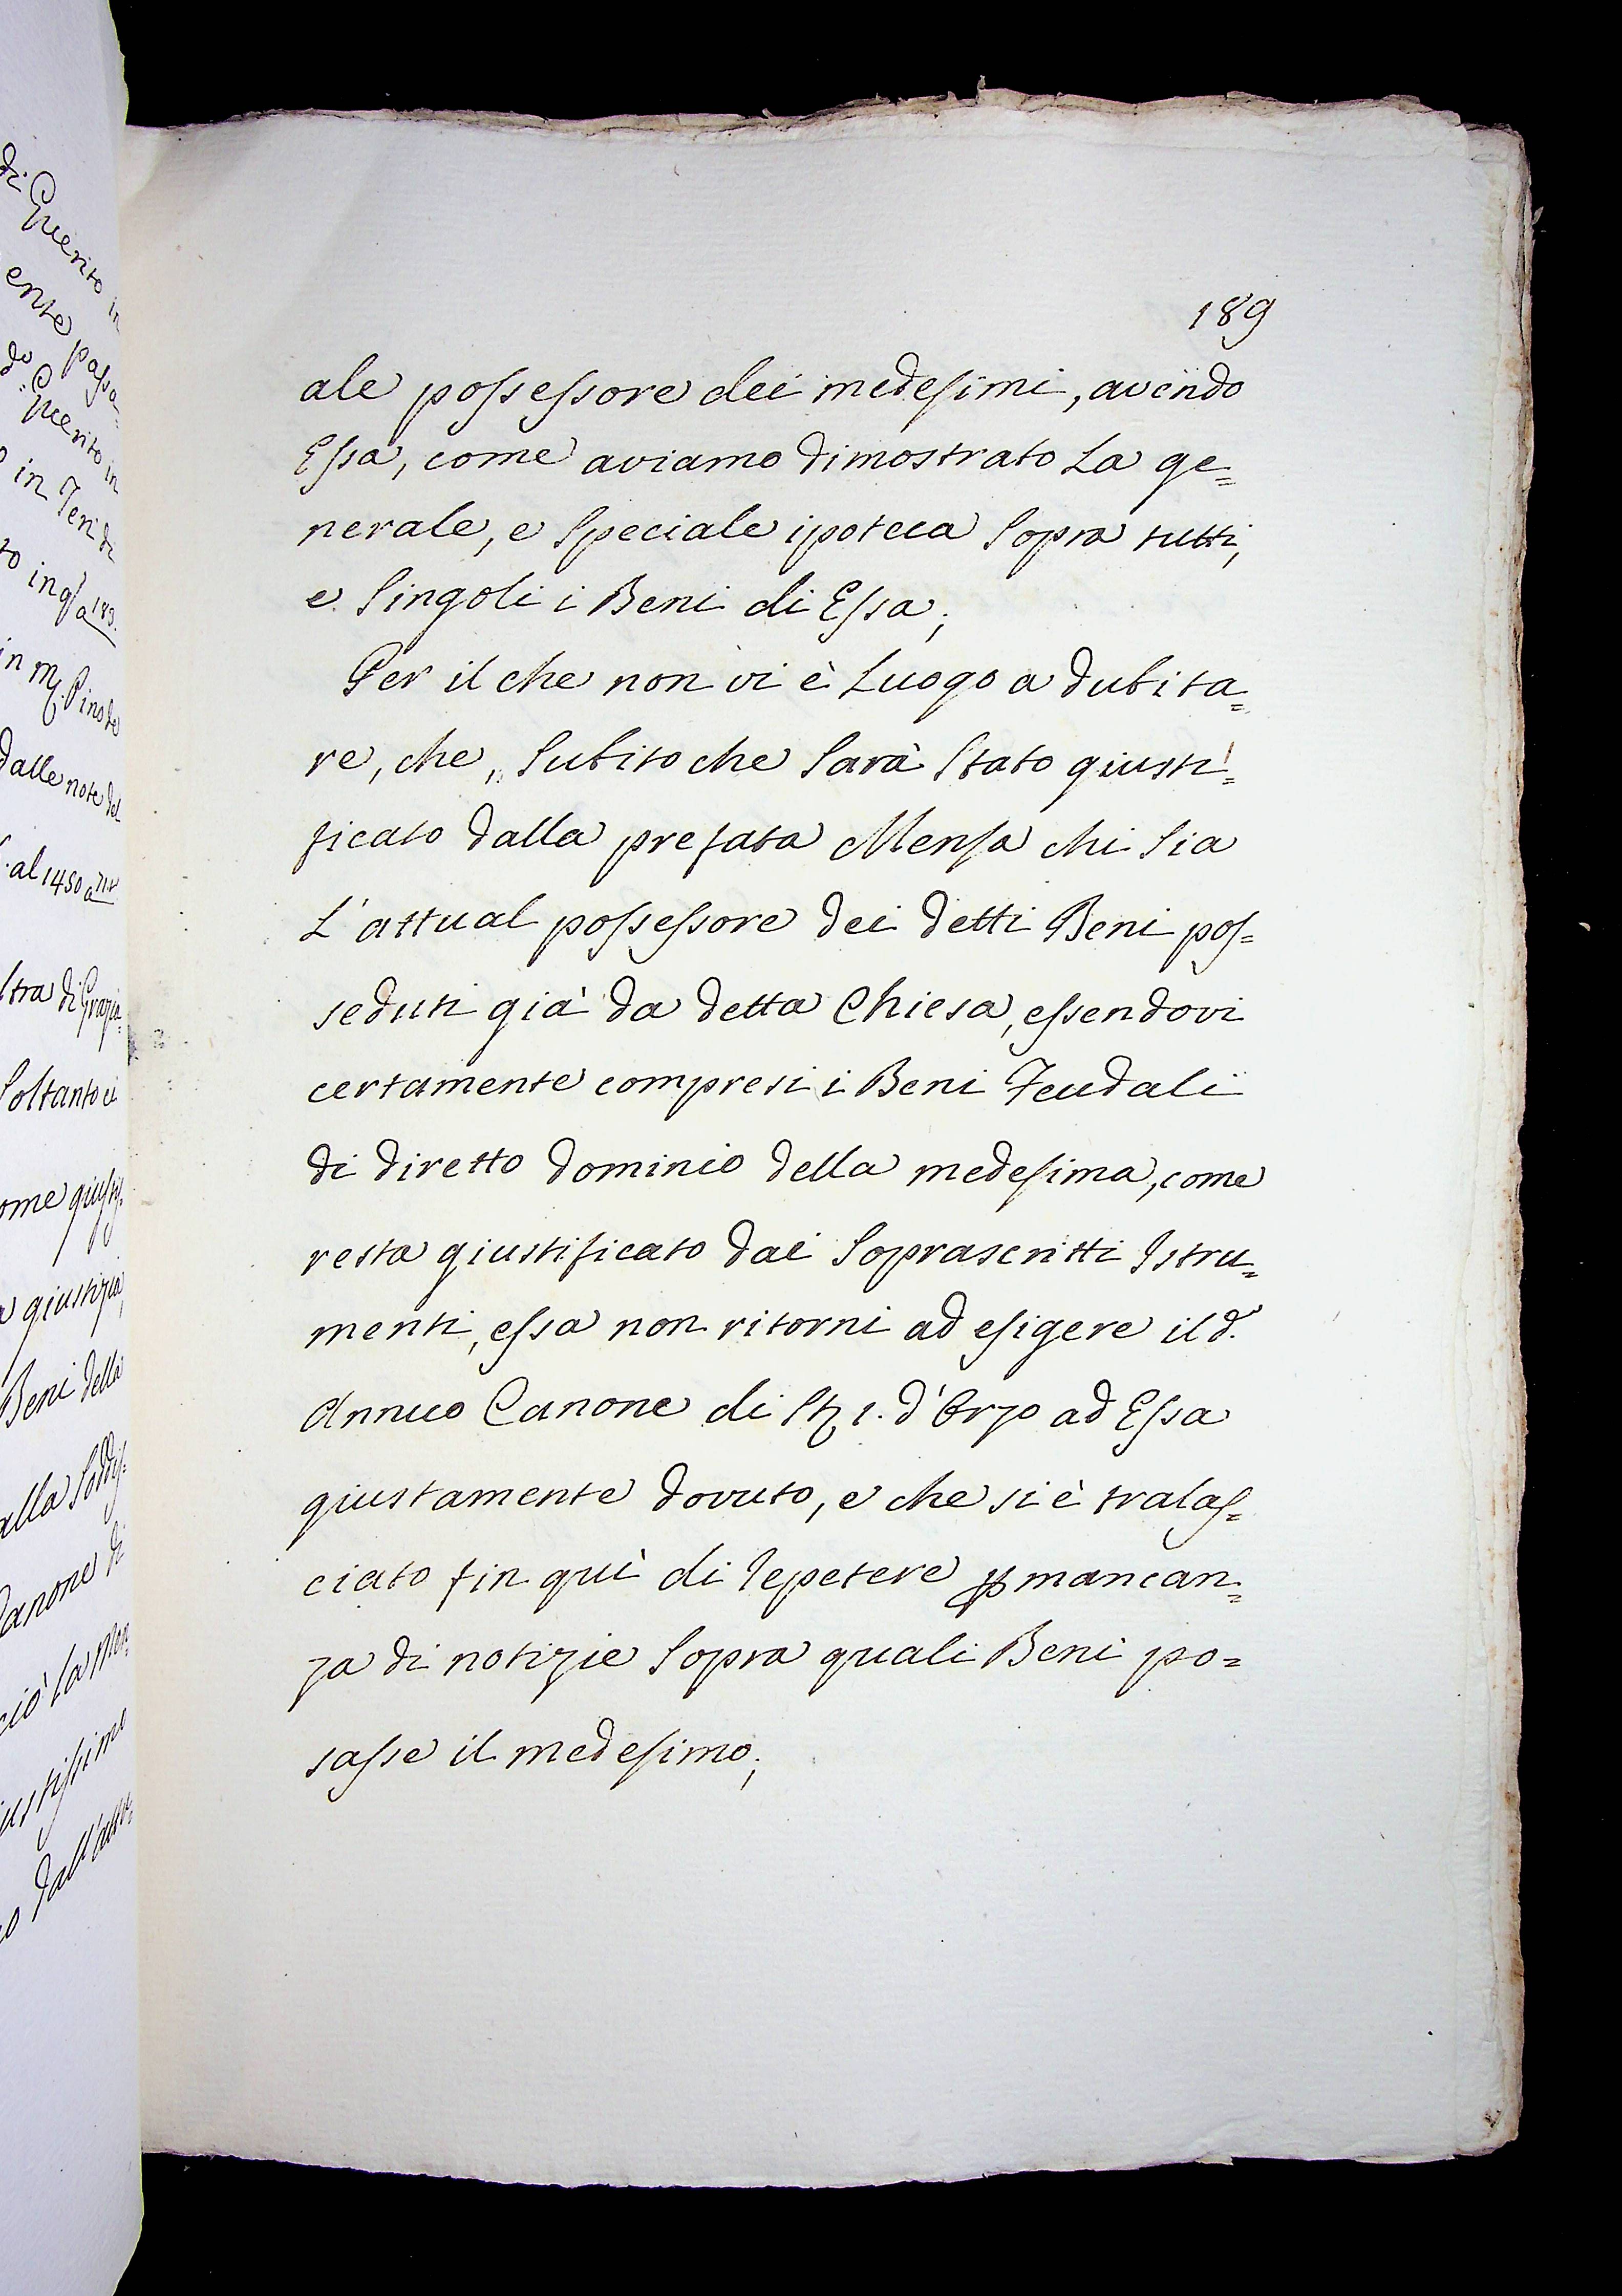 di Querito in
ente passa=
do. Querito in
in Ten. di
to in qa 183.
in m Pino de
dalle note del
al 1450 a
ltra di Grazia=
Soltanto ci
ome giustif
a giustizia,
Beni della
alla Soddis=
Canone di
ciò la Men
iustissimo
dall'attu=
189
ale possessore dei medesimi, avendo
Essa, come aviamo dimostrato La ge=
nerale, e Speciale ipoteca Sopra tutti,
e Singoli i Beni di Essa;
Per il che non vi è Luogo a dubita=
re, che, Subito che Sarà Stato giusti=
ficato dalla prefata Mensa chi Sia
L'attual possessore dei detti Beni pos=
seduti già da detta Chiesa, essendovi
certamente compresi i Beni Feudali
di diretto dominio della medesima, come
resta giustificato dai Soprascritti Istru=
menti, essa non ritorni ad esigere il d.o
Annuo Canone di St. 1. d'Orzo ad Essa
giustamente dovuto, e che si è tralas=
ciato fin quì di repetere p mancan=
za di notizie Sopra quali Beni po=
sasse il medesimo;